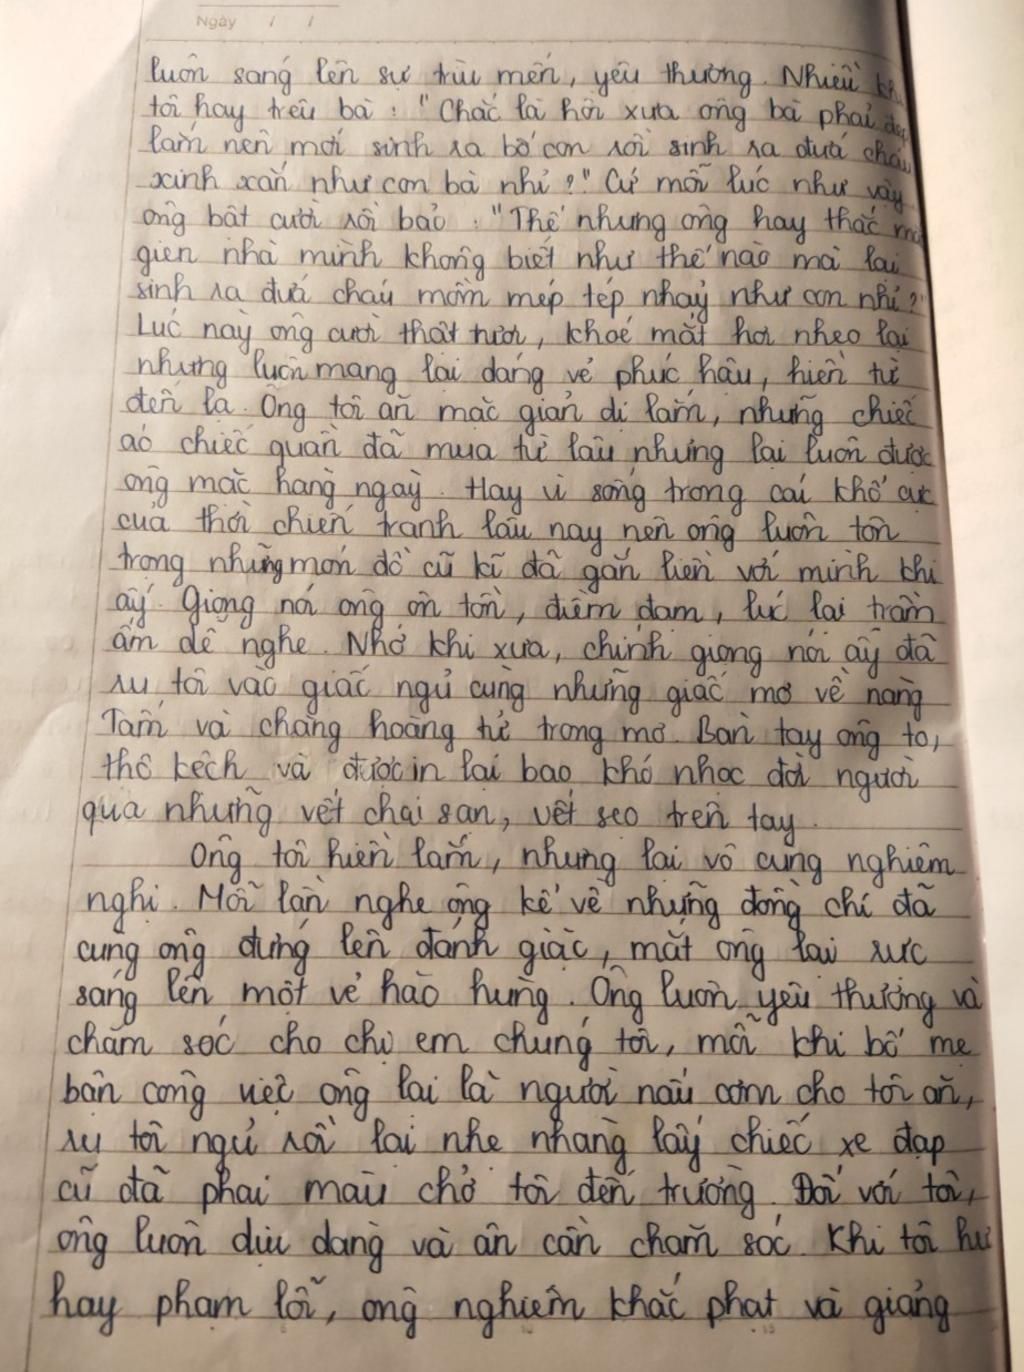 Ngày / /
luôn sáng lên sự trìu mến, yêu thương. Nhiều khi
tôi hay trêu bà : "Chắc là hồi xưa ông bà phải đẹp
lắm nên mới sinh ra bố con rồi sinh ra đứa cháu
xinh xắn như con bà nhỉ ?" Cứ mỗi lúc như vậy
ông bật cười rồi bảo : "Thế nhưng ông hay thắc mắc
gien nhà mình không biết như thế nào mà lại
sinh ra đứa cháu mồm mép tép nhảy như con nhỉ ?"
Lúc này ông cười thật tươi, khoé mắt hơi nheo lại
nhưng luôn mang lại dáng vẻ phúc hậu, hiền từ
đến lạ. Ông tôi ăn mặc giản dị lắm, những chiếc
áo chiếc quần đã mua từ lâu nhưng lại luôn được
ông mặc hàng ngày. Hay vì sống trong cái khổ cực
của thời chiến tranh lâu nay nên ông luôn tôn
trọng những món đồ cũ kĩ đã gắn liền với mình khi
ấy. Giọng nói ông ôn tồn, điềm đạm, lúc lại trầm
ấm dễ nghe. Nhớ khi xưa, chính giọng nói ấy đã
ru tôi vào giấc ngủ cùng những giấc mơ về nàng
Tấm và chàng hoàng tử trong mơ. Bàn tay ông to,
thô kệch và được in lại bao khó nhọc đời người
qua những vết chai sạn, vết sẹo trên tay.
Ông tôi hiền lắm, nhưng lại vô cùng nghiêm
nghị. Mỗi lần nghe ông kể về những đồng chí đã
cùng ông đứng lên đánh giặc, mắt ông lại rực
sáng lên một vẻ hào hùng. Ông luôn yêu thương và
chăm sóc cho chị em chúng tôi, mỗi khi bố mẹ
bận công việc ông lại là người nấu cơm cho tôi ăn,
ru tôi ngủ rồi lại nhẹ nhàng lấy chiếc xe đạp
cũ đã phai màu chở tôi đến trường. Đối với tôi,
ông luôn dịu dàng và ân cần chăm sóc. Khi tôi hư
hay phạm lỗi, ông nghiêm khắc phạt và giảng